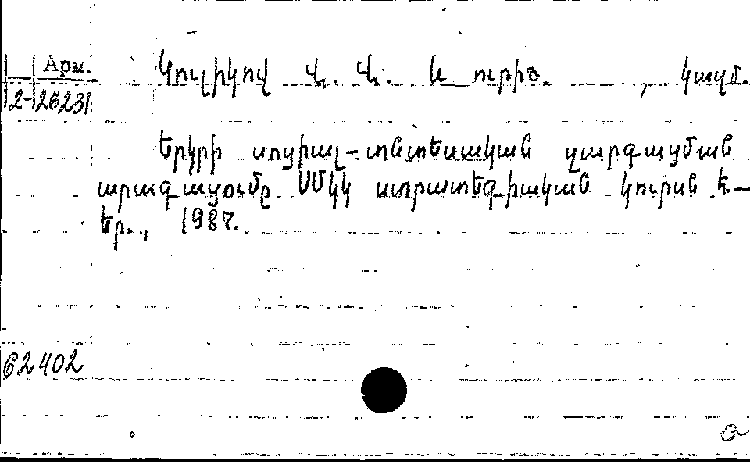 Арм. Կուլիկով Վ. Վ. և ուրիշ. , կազմ.
2-26231
Երկրի սոցիալ-տնտեսական զարգացման
արագացումը ՍՄԿԿ ստրատեգիական կուրսն է-
Եր., 1987.
62402